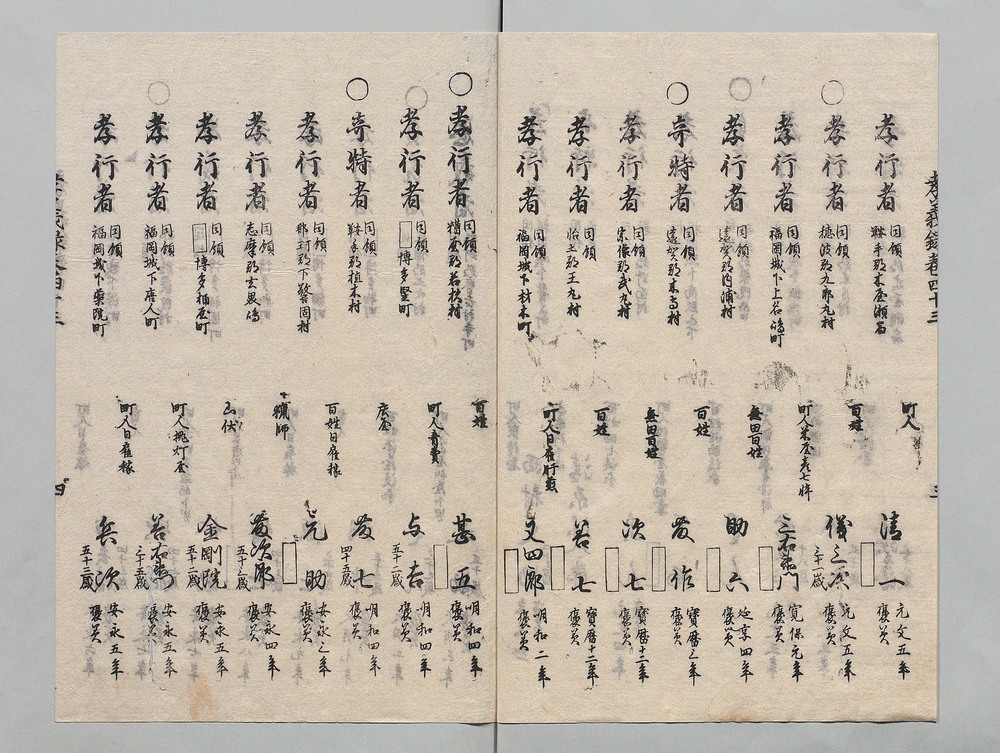 孝義録巻四十三
孝行者 同領 鞍手郡木屋瀬宿 町人 清一 元文五年 褒美
○孝行者 同領 穂波郡九郎丸村 百姓 儀三次 三十一歳 元文五年 褒美
孝行者 同領 福岡城下上名嶋町 町人米屋彦七忰 三右衛門 寛保元年 褒美
○孝行者 同領 遠賀郡内浦村 無田百姓 助六 延享四年 褒美
○奇特者 同領 遠賀郡本城村 百姓 友作 宝暦三年 褒美
孝行者 同領 宗像郡武丸村 無田百姓 次七 寶暦十二年 褒美
孝行者 同領 怡土郡王丸村 百姓 善七 寶暦十二年 褒美
孝行者 同領 福岡城下材木町 町人日雇 文四郎 明和二年 褒美
○孝行者 同領 糟屋郡若杦村 百姓 甚五 明和四年 褒美
○孝行者 同領 博多竪町 町人 与吉 五十二歳 明和四年 褒美
○奇特者 同領 鞍手郡植木村 庄屋 友七 四十五歳 明和四年 褒美
孝行者 同領 那珂郡下警固村 百姓日雇稼 元助 安永三年 褒美
孝行者 同領 志摩郡玄界嶋 猟師 友次郎 五十三歳 安永四年 褒美
孝行者 同領 博多桶屋町 山伏 金剛院 五十二歳 安永五年 褒美
○孝行者 同領 福岡城下唐人町 町人挑灯屋 善右衛門 三十五歳 安永五年 褒美
孝行者 同領 福岡城下薬院町 町人日雇稼 兵次 五十三歳 安永五年 褒美
孝義録巻四十三
四